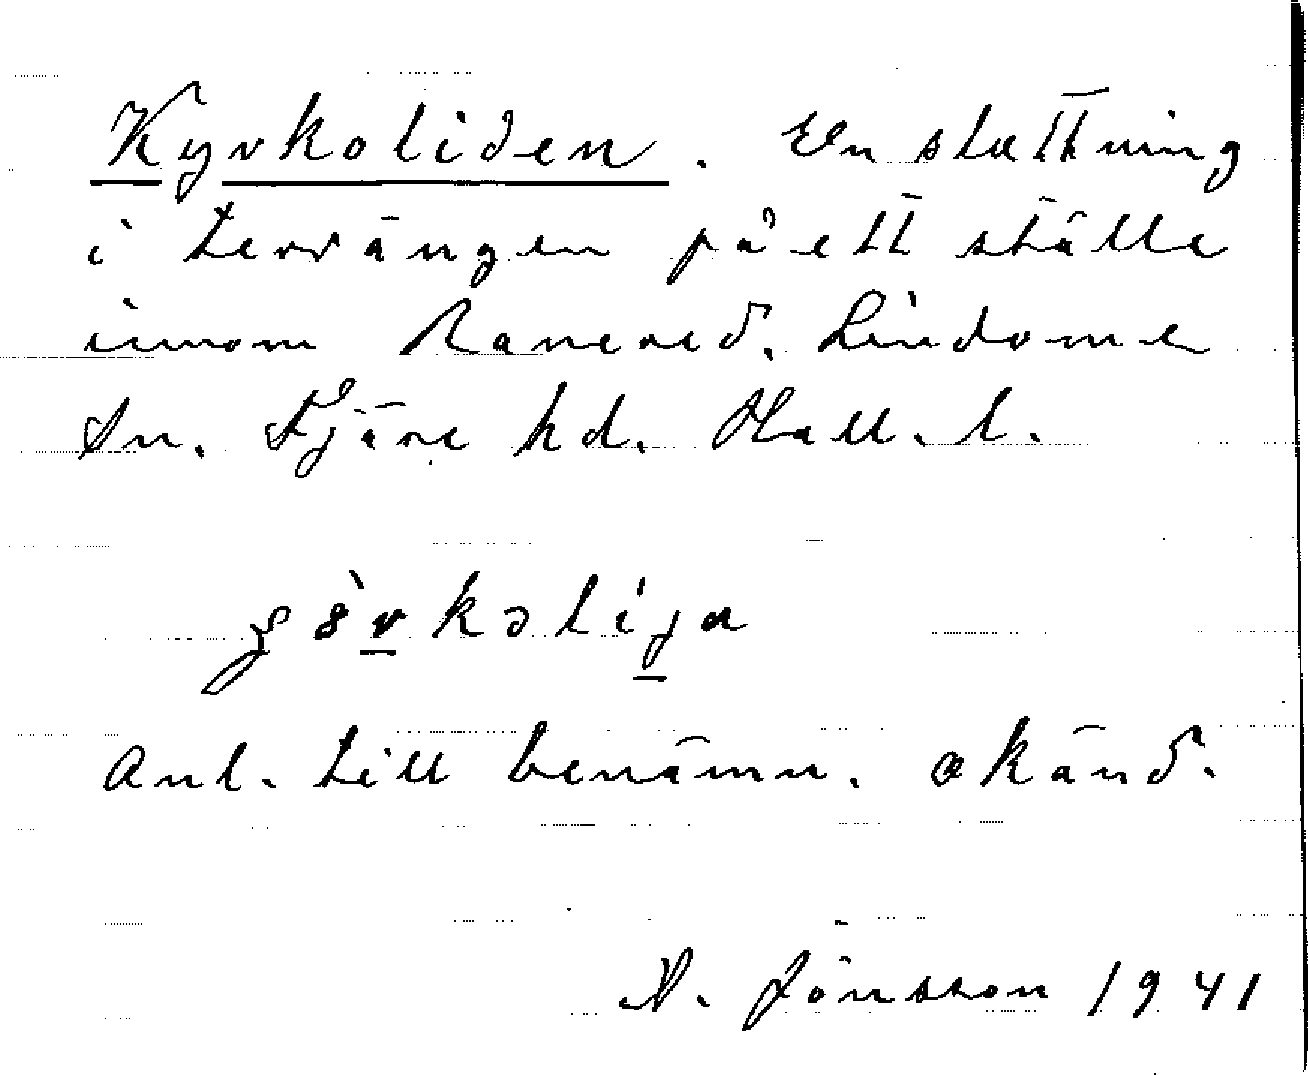 Kyrkoliden. En sluttning
i terrängen på ett ställe
inom Ranered. Lindome
sn. Fjäre hd. Hall. l.
Anl. till benämn. okänd.
N. Jönsson 1941